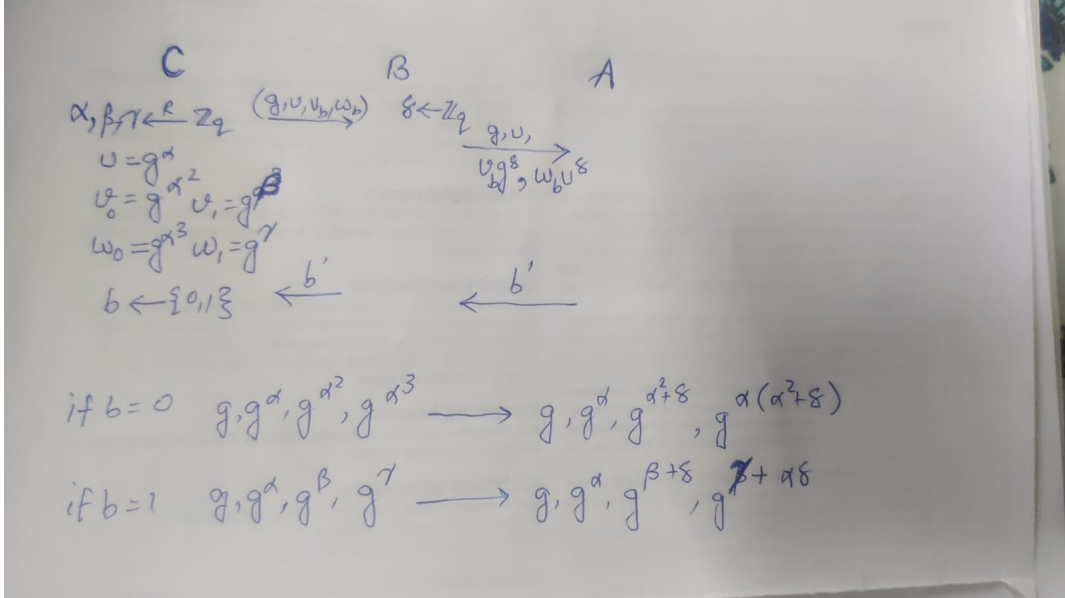 C B A
α, β, γ ←R Zq (g, u, v_b, w_b) → δ ← Zq
g, u, →
u = g^α v_b g^δ, w_b u^δ
v_0 = g^α^2 v_1 = g^β
w_0 = g^α^3 w_1 = g^γ
b ← {0,1} ← b' ← b'
if b = 0 g, g^α, g^α^2, g^α^3 → g, g^α, g^α^2+δ, g^α(α^2+δ)
if b = 1 g, g^α, g^β, g^γ → g, g^α, g^β+δ, g^γ+αδ